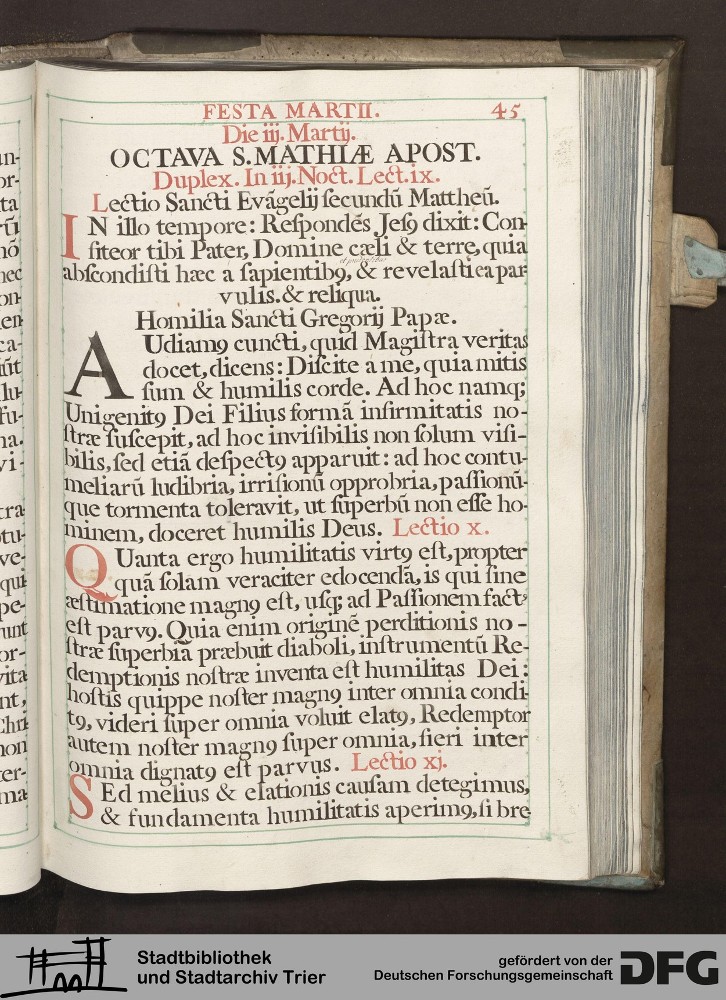 FESTA MARTII. 45
Die iij. Martij.
OCTAVA S. MATHIÆ APOST.
Duplex. In iij. Noct. Lect. ix.
Lectio Sancti Evãgelij ſecundũ Mattheũ.
IN illo tempore: Reſpondẽs Jeſꝰ dixit: Con-
fiteor tibi Pater, Domine cæli & terrę, quia
abſcondiſti hæc a ſapientibꝰ, & revelaſti ea par-
vulis. & reliqua.
Homilia Sancti Gregorij Papæ.
AUdiamꝰ cuncti, quid Magiſtra veritas
docet, dicens: Diſcite a me, quia mitis
ſum & humilis corde. Ad hoc namq;
Unigenitꝰ Dei Filius formã infirmitatis no-
ſtræ ſuſcepit, ad hoc inviſibilis non ſolum viſi-
bilis, ſed etiã deſpectꝰ apparuit: ad hoc contu-
meliarũ ludibria, irriſionũ opprobria, paſſionũ-
que tormenta toleravit, ut ſuperbũ non eſſe ho-
minem, doceret humilis Deus. Lectio x.
QUanta ergo humilitatis virtꝰ eſt, propter
quã ſolam veraciter edocendã, is qui ſine
æſtimatione magnꝰ eſt, uſq; ad Paſſionem factꝰ
eſt parvꝰ. Quia enim originẽ perditionis no-
ſtræ ſuperbiã præbuit diaboli, inſtrumentũ Re-
demptionis noſtræ inventa eſt humilitas Dei:
hoſtis quippe noſter magnꝰ inter omnia condi-
tꝰ, videri ſuper omnia voluit elatꝰ, Redemptor
autem noſter magnꝰ ſuper omnia, fieri inter
omnia dignatꝰ eſt parvus. Lectio xj.
SEd melius & elationis cauſam detegimus,
& fundamenta humilitatis aperimꝰ, ſi bre
Stadtbibliothek
und Stadtarchiv Trier
gefördert von der
Deutschen Forschungsgemeinschaft
DFG